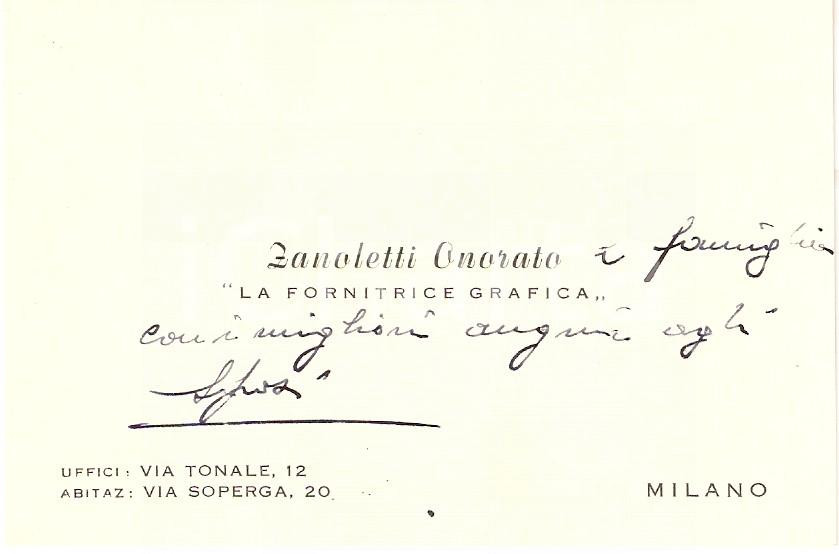 Zanoletti Onorato e famiglia
"LA FORNITRICE GRAFICA„
con i migliori auguri agli
Sposi
UFFICI: VIA TONALE, 12
ABITAZ: VIA SOPERGA, 20
MILANO